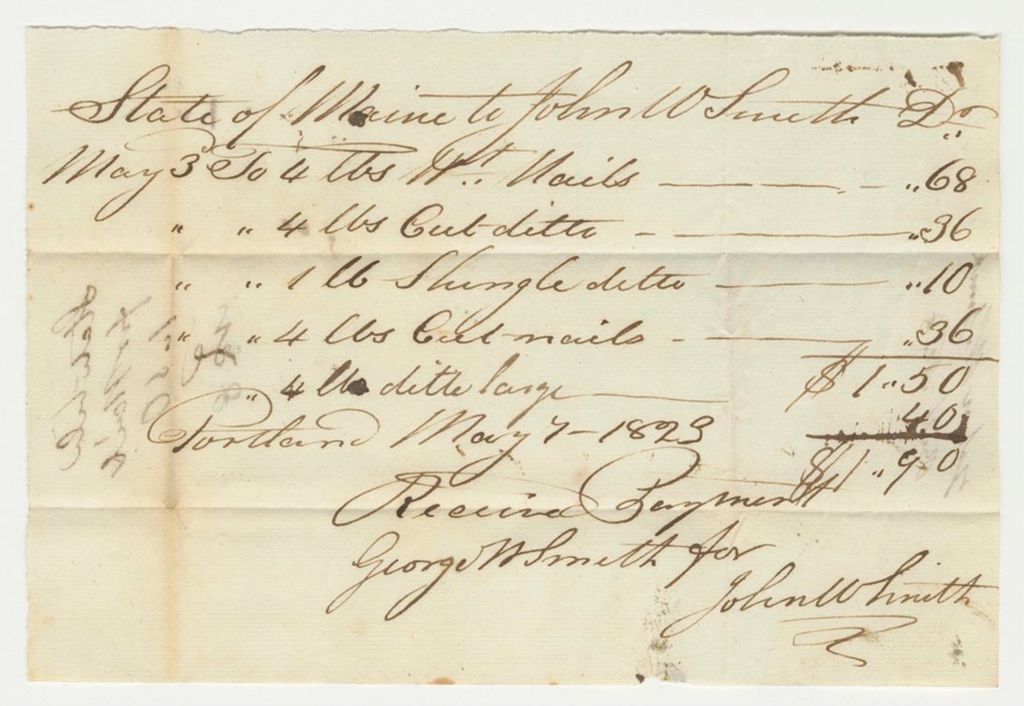 State of Maine to John W Smith Dr
May 3 To 4 lbs Wt. Nails — — - „68
„ „ 4 lbs Cut ditto - — „36
„ „ 1 lb Shingle ditto — — „10
„ „ 4 lbs Cut nails - — „36
„ 4 lbs ditto large — $1„50
40
Portland May 7 - 1823 $1„90
Receivd Payment
George W Smith for
John W Smith